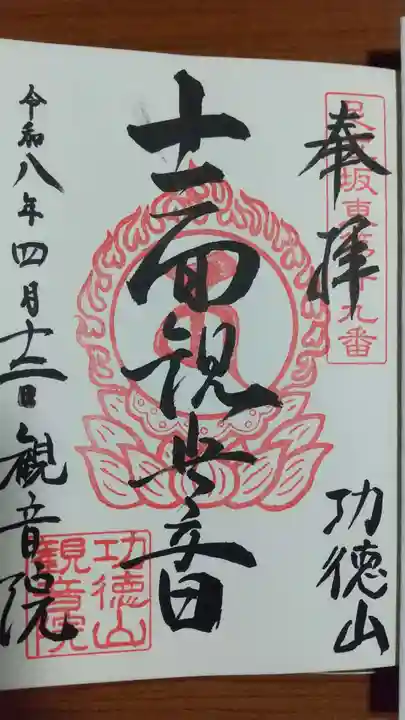 奉拝
坂東
九番
功徳山
十一面観世音
令和八年四月十二日
觀音院
功徳山
觀音院